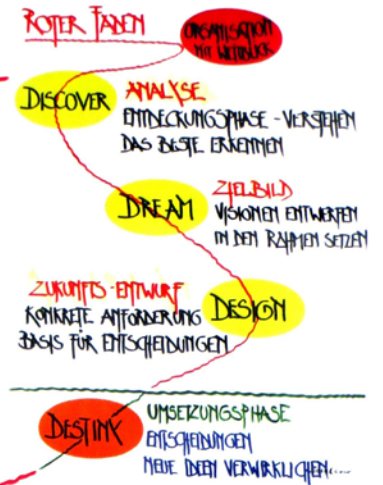 ROTER FADEN
ORGANISATION
MIT WEITBLICK
DISCOVER
ANALYSE
ENTDECKUNGSPHASE - VERSTEHEN
DAS BESTE ERKENNEN
DREAM
ZIELBILD
VISIONEN ENTWERFEN
IN DEN RAHMEN SETZEN
ZUKUNFTS-ENTWURF
KONKRETE ANFORDERUNG
BASIS FÜR ENTSCHEIDUNGEN
DESIGN
DESTINY
UMSETZUNGSPHASE
ENTSCHEIDUNGEN
NEUE IDEEN VERWIRKLICHEN...